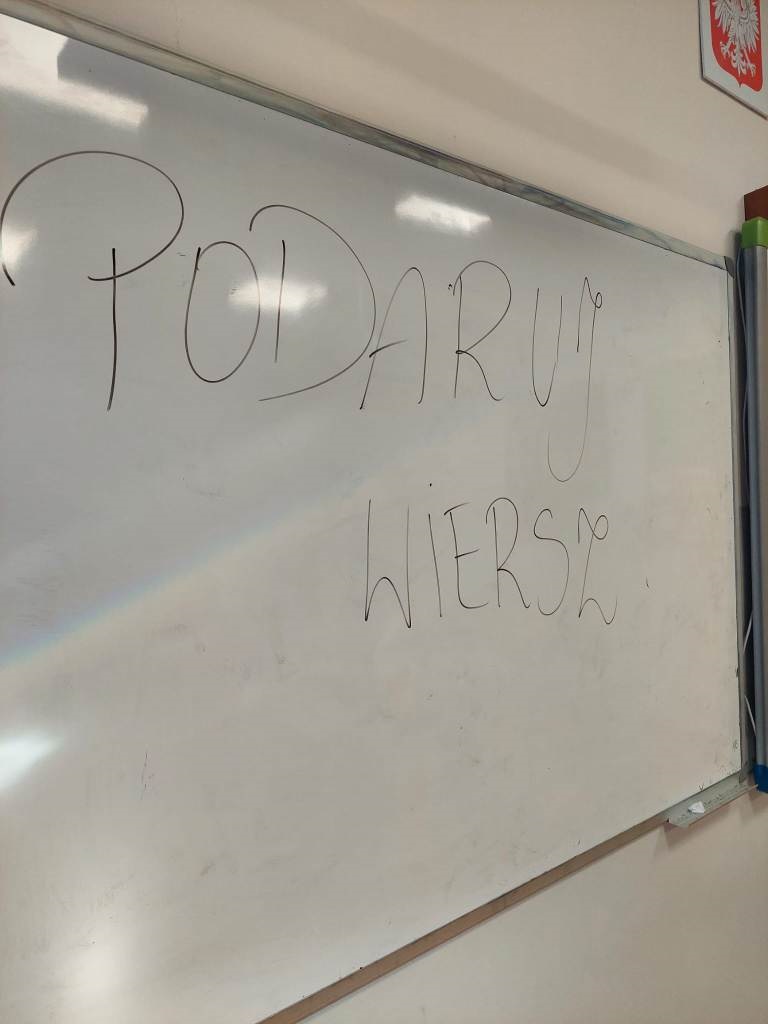 PODARUJ
WIERSZ